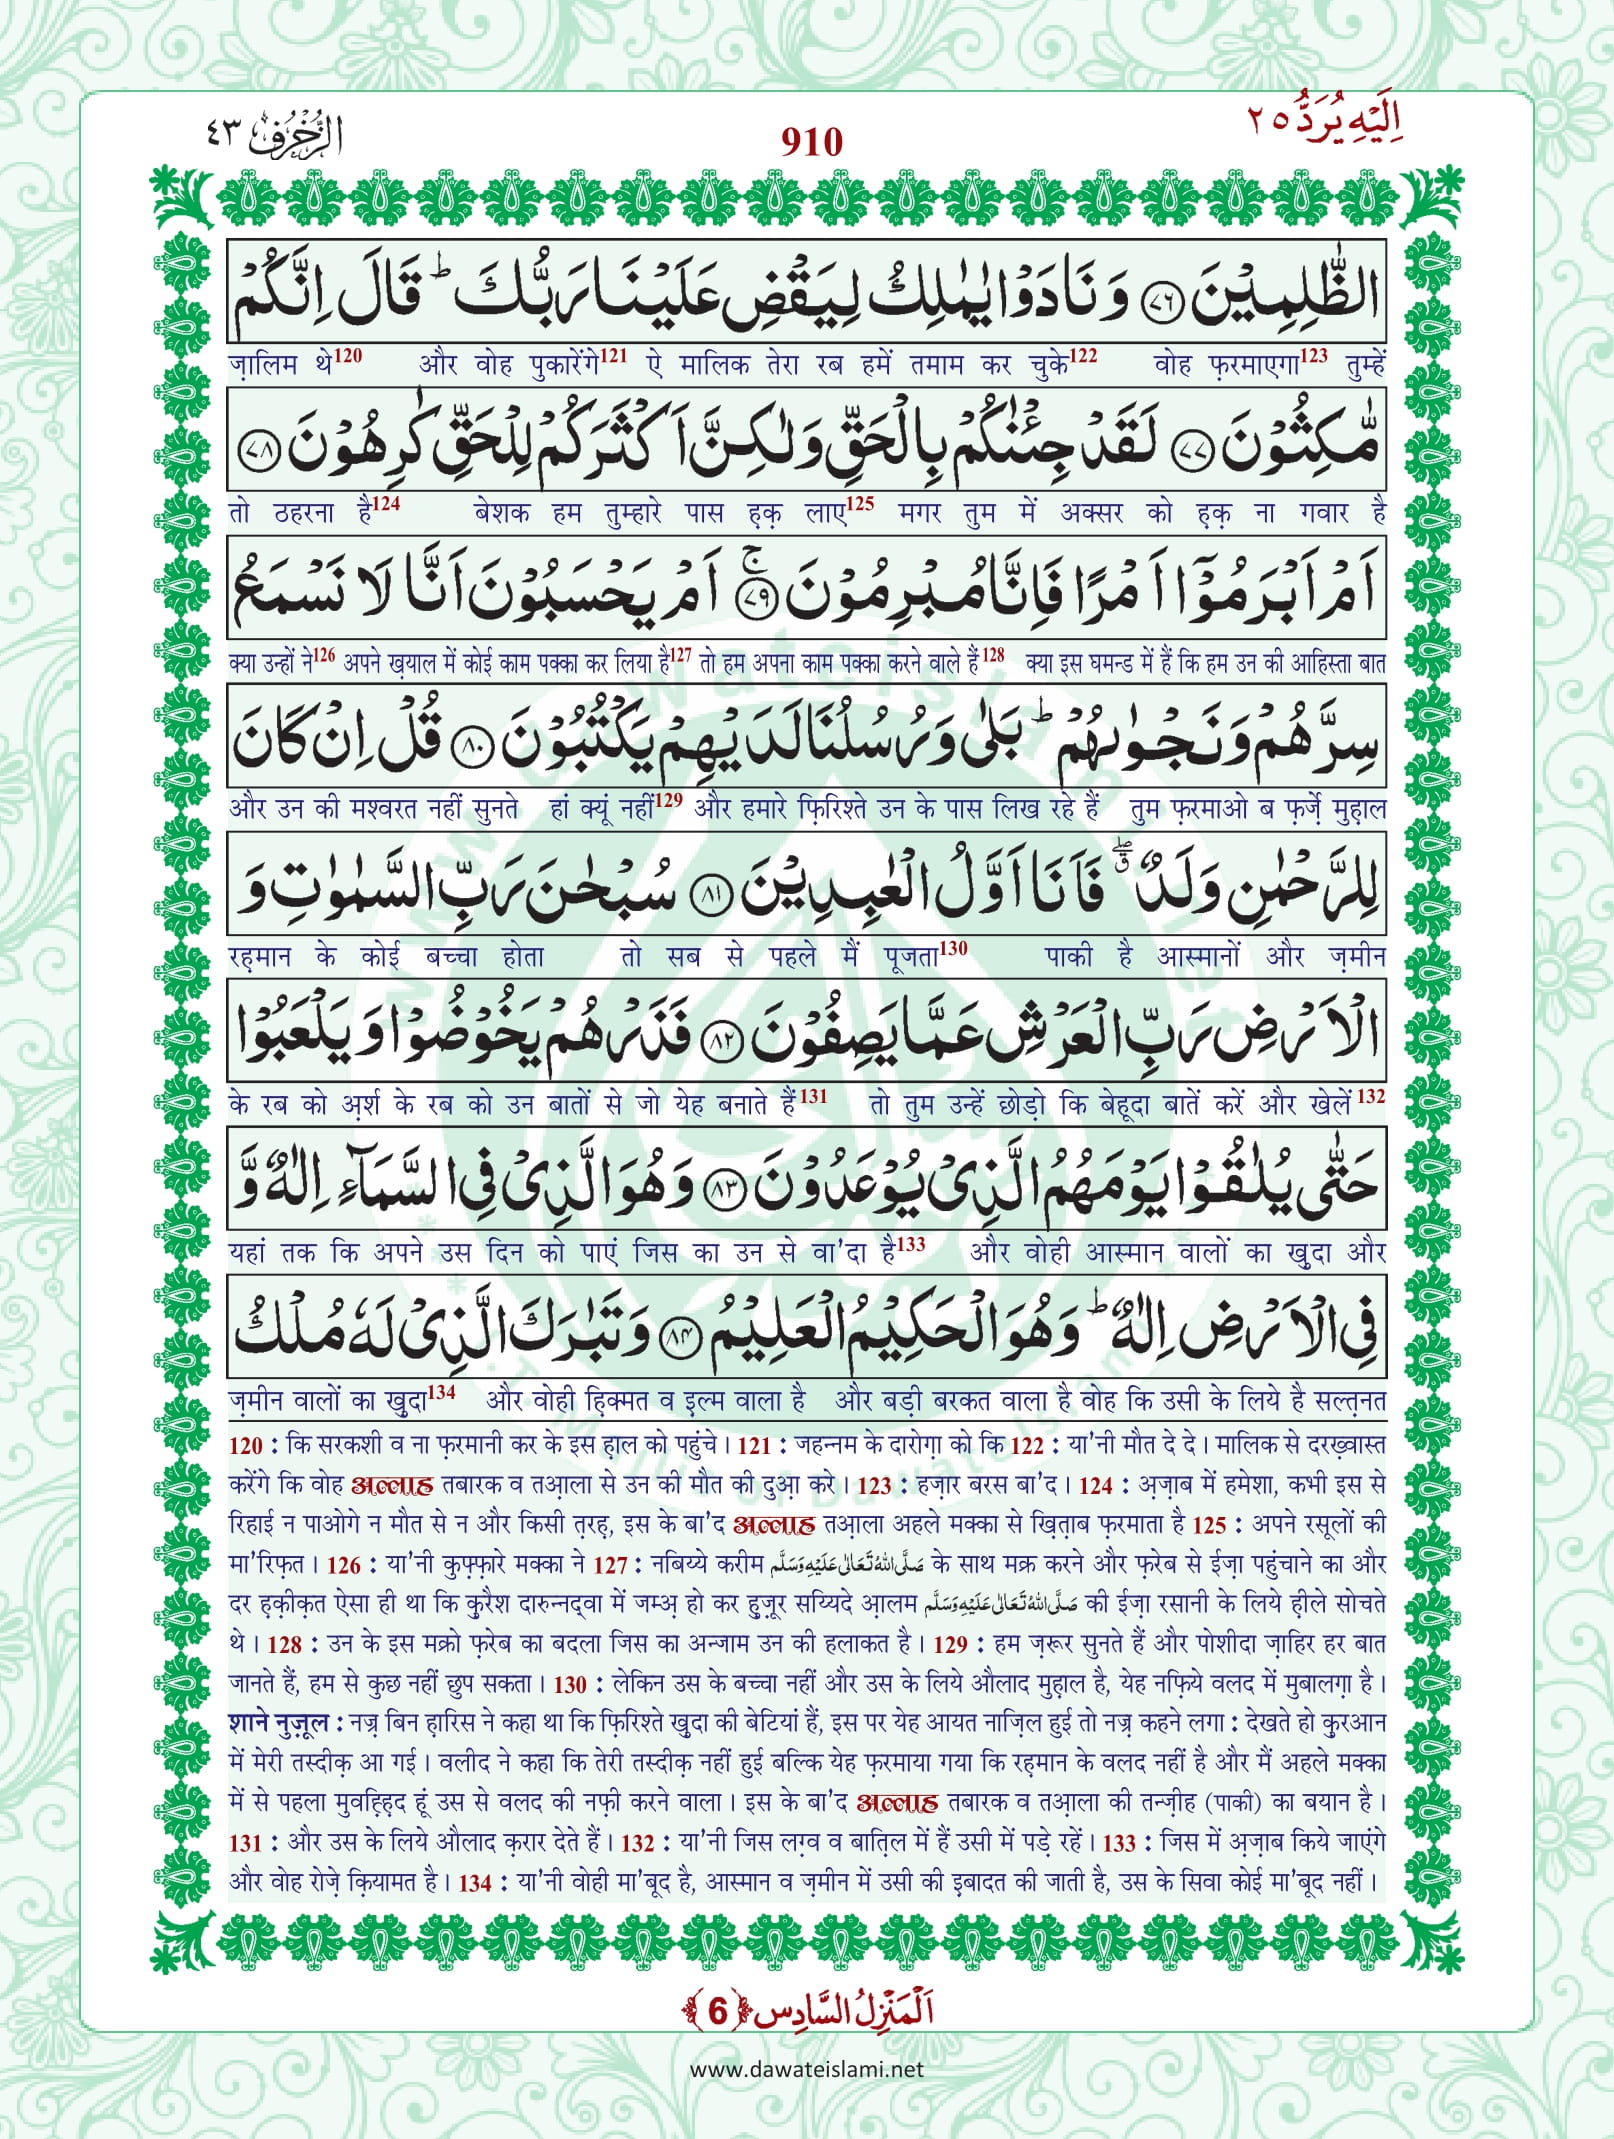 اِلَيْهِ يُرَدُّ ٢٥
910
الزُّخْرُف ٤٣
الظّٰلِمِيْنَ ﴿٧٦﴾ وَنَادَوْا يٰمٰلِكُ لِيَقْضِ عَلَيْنَا رَبُّكَ ؕ قَالَ اِنَّكُمْ
ज़ालिम थे120 और वोह पुकारेंगे121 ऐ मालिक तेरा रब हमें तमाम कर चुके122 वोह फ़रमाएगा123 तुम्हें
مّٰكِثُوْنَ ﴿٧٧﴾ لَقَدْ جِئْنٰكُمْ بِالْحَقِّ وَلٰكِنَّ اَكْثَرَكُمْ لِلْحَقِّ كٰرِهُوْنَ ﴿٧٨﴾
तो ठहरना है124 बेशक हम तुम्हारे पास ह़क़ लाए125 मगर तुम में अक्सर को ह़क़ ना गवार है
اَمْ اَبْرَمُوْۤا اَمْرًا فَاِنَّا مُبْرِمُوْنَ ﴿٧٩﴾ۚ اَمْ يَحْسَبُوْنَ اَنَّا لَا نَسْمَعُ
क्या उन्हों ने126 अपने ख़याल में कोई काम पक्का कर लिया है127 तो हम अपना काम पक्का करने वाले हैं128 क्या इस घमन्ड में हैं कि हम उन की आहिस्ता बात
سِرَّهُمْ وَنَجْوٰىهُمْ ؕ بَلٰى وَرُسُلُنَا لَدَيْهِمْ يَكْتُبُوْنَ ﴿٨٠﴾ قُلْ اِنْ كَانَ
और उन की मश्वरत नहीं सुनते हां क्यूं नहीं129 और हमारे फ़िरिश्ते उन के पास लिख रहे हैं तुम फ़रमाओ ब फ़र्ज़े मुह़ाल
لِلرَّحْمٰنِ وَلَدٌ ۖۗ فَاَنَا اَوَّلُ الْعٰبِدِيْنَ ﴿٨١﴾ سُبْحٰنَ رَبِّ السَّمٰوٰتِ وَ
रह़मान के कोई बच्चा होता तो सब से पहले मैं पूजता130 पाकी है आस्मानों और ज़मीन
الْاَرْضِ رَبِّ الْعَرْشِ عَمَّا يَصِفُوْنَ ﴿٨٢﴾ فَذَرْهُمْ يَخُوْضُوْا وَيَلْعَبُوْا
के रब को अ़र्श के रब को उन बातों से जो येह बनाते हैं131 तो तुम उन्हें छोड़ो कि बेहूदा बातें करें और खेलें132
حَتّٰى يُلٰقُوْا يَوْمَهُمُ الَّذِيْ يُوْعَدُوْنَ ﴿٨٣﴾ وَهُوَ الَّذِيْ فِي السَّمَآءِ اِلٰهٌ وَّ
यहां तक कि अपने उस दिन को पाएं जिस का उन से वा'दा है133 और वोही आस्मान वालों का ख़ुदा और
فِي الْاَرْضِ اِلٰهٌ ؕ وَهُوَ الْحَكِيْمُ الْعَلِيْمُ ﴿٨٤﴾ وَتَبٰرَكَ الَّذِيْ لَهٗ مُلْكُ
ज़मीन वालों का ख़ुदा134 और वोही ह़िक्मत व इ़ल्म वाला है और बड़ी बरकत वाला है वोह कि उसी के लिये है सल्त़नत
120 : कि सरकशी व ना फ़रमानी कर के इस ह़ाल को पहुंचे। 121 : जहन्नम के दारोग़ा को कि 122 : या'नी मौत दे दे। मालिक से दरख़्वास्त
करेंगे कि वोह अल्लाह तबारक व तआ़ला से उन की मौत की दुआ़ करे। 123 : हज़ार बरस बा'द। 124 : अ़ज़ाब में हमेशा, कभी इस से
रिहाई न पाओगे न मौत से न और किसी त़रह, इस के बा'द अल्लाह तआ़ला अहले मक्का से ख़ित़ाब फ़रमाता है 125 : अपने रसूलों की
मा'रिफ़त। 126 : या'नी कुफ़्फ़ारे मक्का ने 127 : नबिय्ये करीम صَلَّى اللهُ تَعَالٰى عَلَيْهِ وَسَلَّم के साथ मक्र करने और फ़रेब से ईज़ा पहुंचाने का और
दर ह़क़ीक़त ऐसा ही था कि क़ुरैश दारुन्नद्वा में जम्अ़ हो कर हुज़ूर सय्यिदे आ़लम صَلَّى اللهُ تَعَالٰى عَلَيْهِ وَسَلَّم की ईज़ा रसानी के लिये ह़ीले सोचते
थे। 128 : उन के इस मक्रो फ़रेब का बदला जिस का अन्जाम उन की हलाकत है। 129 : हम ज़रूर सुनते हैं और पोशीदा ज़ाहिर हर बात
जानते हैं, हम से कुछ नहीं छुप सकता। 130 : लेकिन उस के बच्चा नहीं और उस के लिये औलाद मुह़ाल है, येह नफ़िये वलद में मुबालग़ा है।
शाने नुज़ूल : नज़्र बिन ह़ारिस ने कहा था कि फ़िरिश्ते ख़ुदा की बेटियां हैं, इस पर येह आयत नाज़िल हुई तो नज़्र कहने लगा : देखते हो क़ुरआन
में मेरी तस्दीक़ आ गई। वलीद ने कहा कि तेरी तस्दीक़ नहीं हुई बल्कि येह फ़रमाया गया कि रह़मान के वलद नहीं है और मैं अहले मक्का
में से पहला मुवह़्ह़िद हूं उस से वलद की नफ़ी करने वाला। इस के बा'द अल्लाह तबारक व तआ़ला की तन्ज़ीह (पाकी) का बयान है।
131 : और उस के लिये औलाद क़रार देते हैं। 132 : या'नी जिस लग़्व व बात़िल में हैं उसी में पड़े रहें। 133 : जिस में अ़ज़ाब किये जाएंगे
और वोह रोज़े क़ियामत है। 134 : या'नी वोही मा'बूद है, आस्मान व ज़मीन में उसी की इ़बादत की जाती है, उस के सिवा कोई मा'बूद नहीं।
اَلْمَنْزِلُ السَّادِس ﴿6﴾
www.dawateislami.net